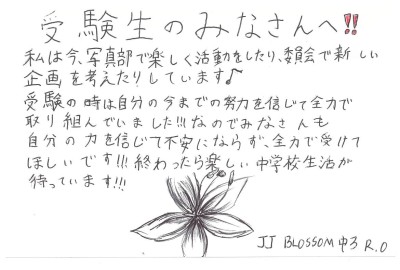 受験生のみなさんへ!!
私は今、写真部で楽しく活動をしたり、委員会で新しい
企画を考えたりしています♪
受験の時は自分の今までの努力を信じて全力で
取り組んでいました!!なのでみなさんも
自分の力を信じて不安にならず、全力で受けて
ほしいです!!!終わったら楽しい中学校生活が
待っています!!!
JJ BLOSSOM 中3 R.O